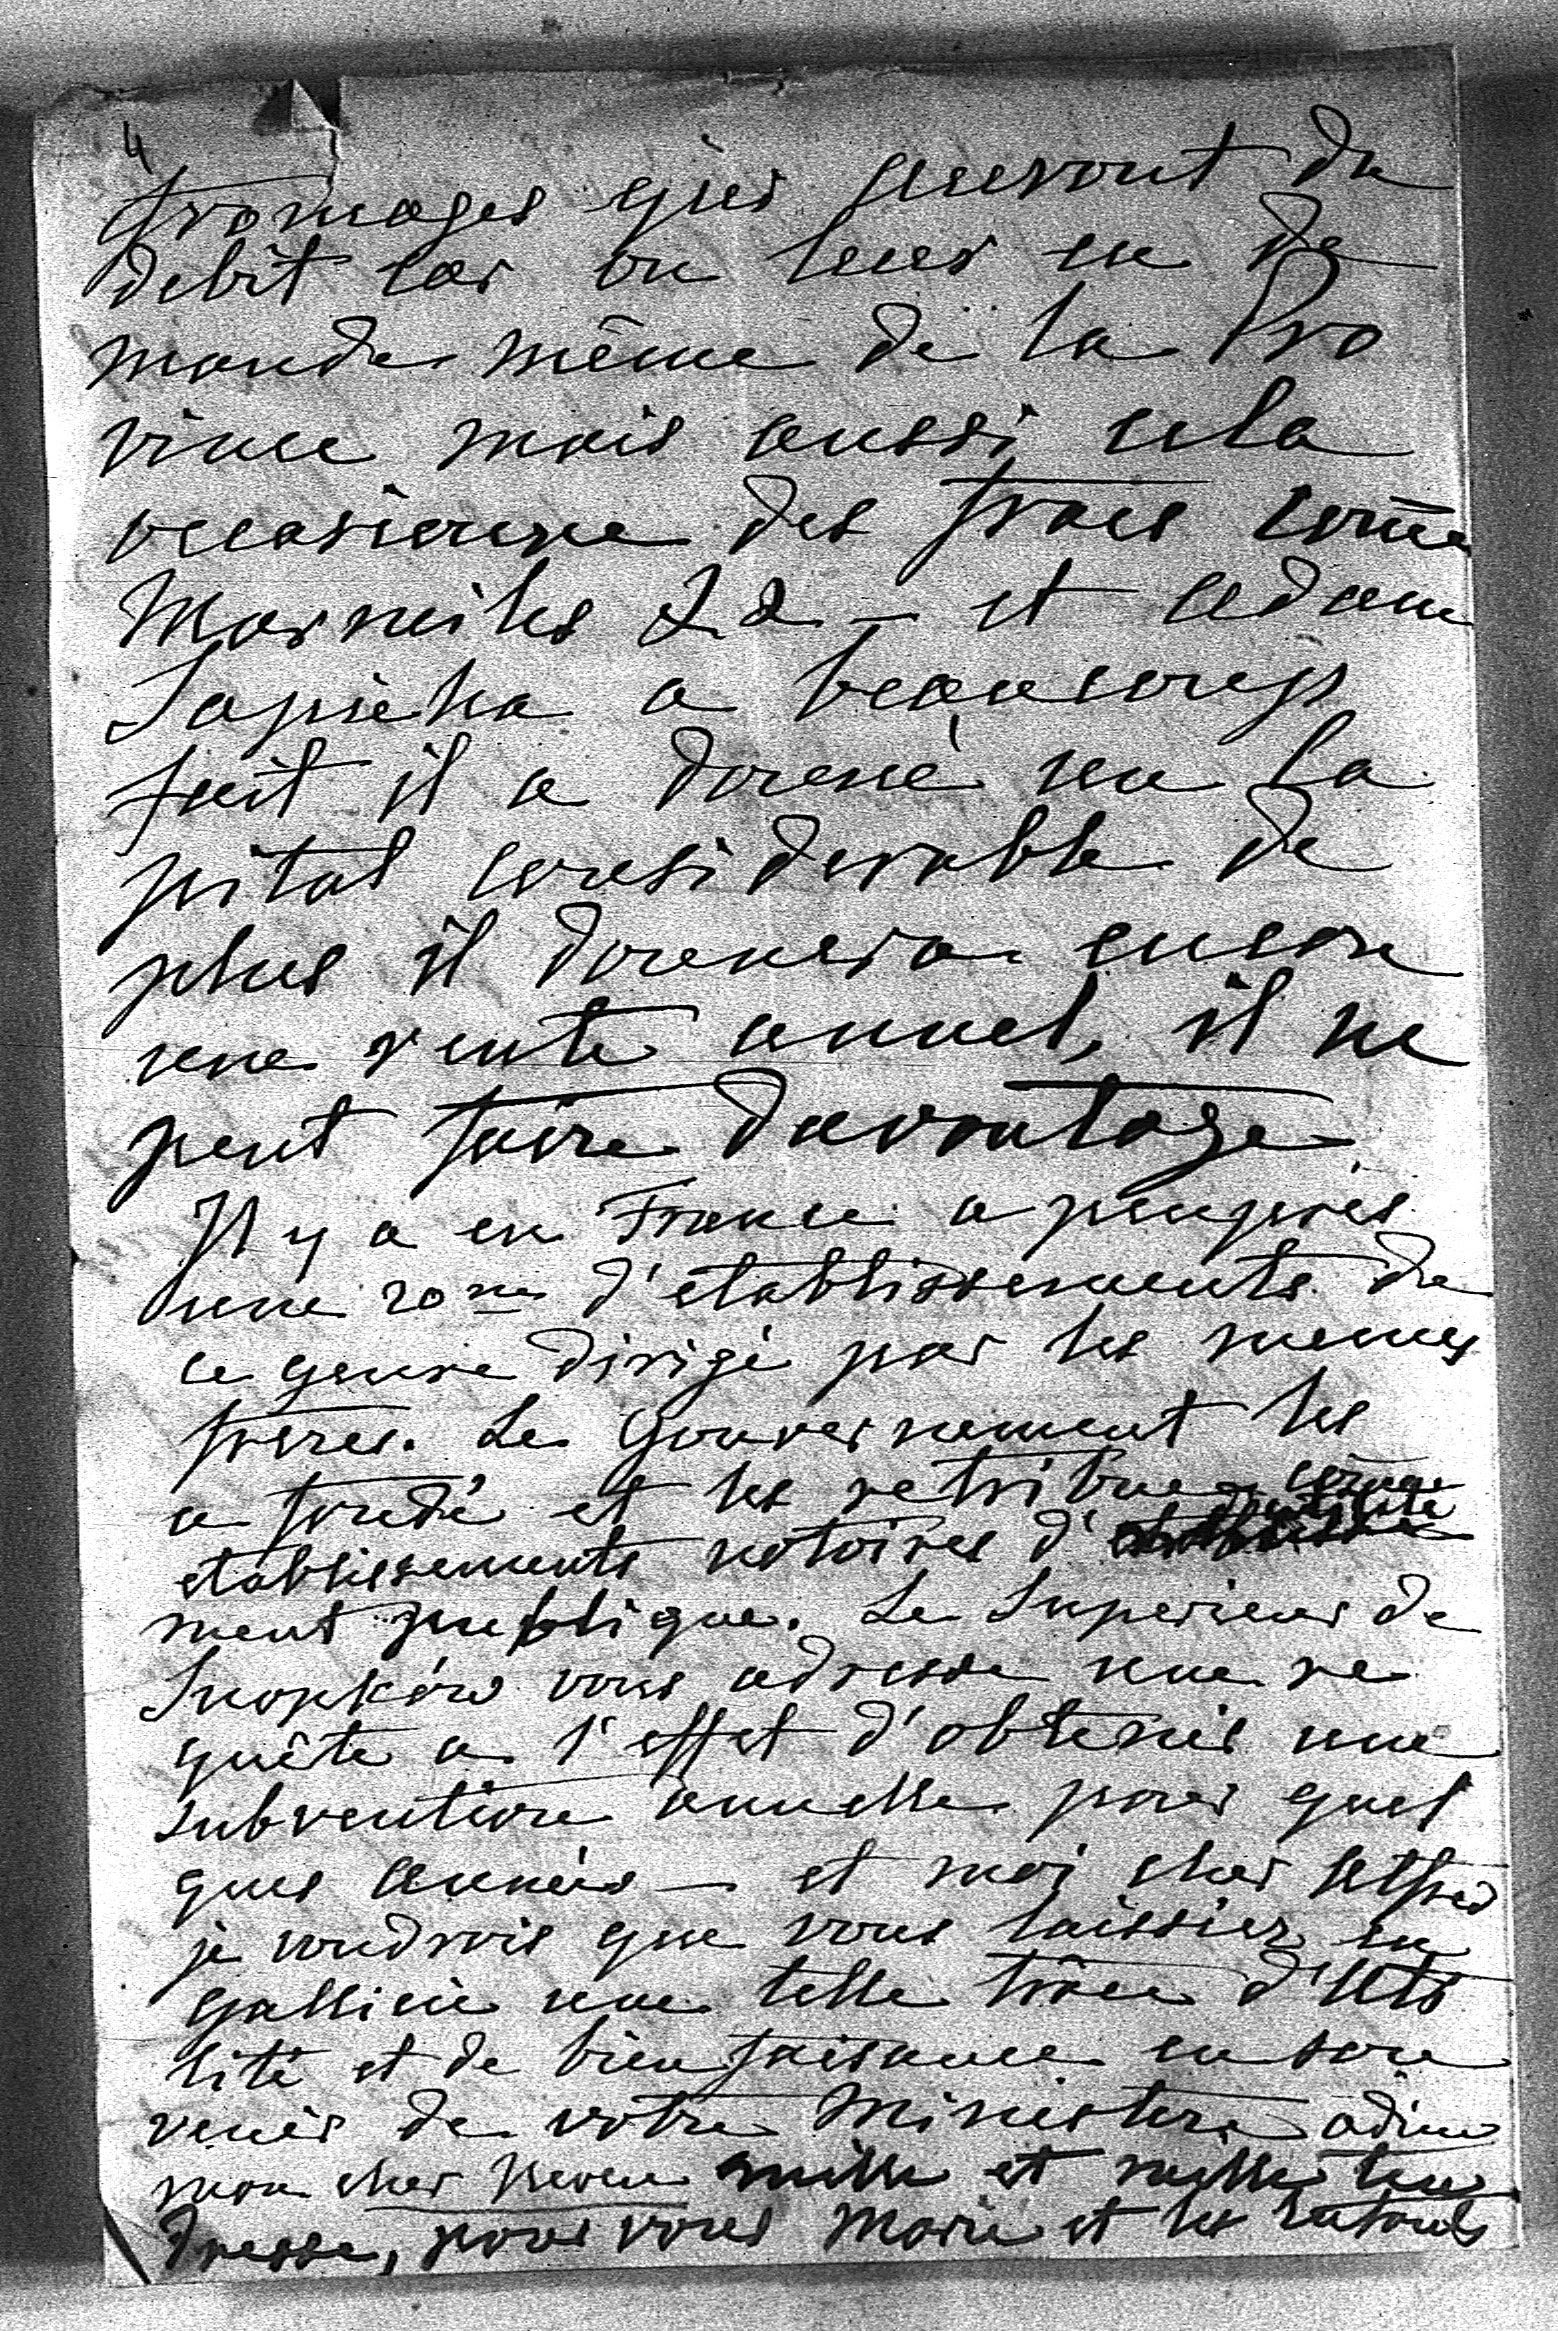 4
fromages qui auront du
debit car on leur en de
mande même de la Pro
vince mais aussi cela
occasionne des frais com̄e
Marmites && — et Adam
Sapieha a beaucoup
fait il a donné un Ca
pital considerable de
plus il donnera encore
une rente annuel, il ne
peut faire davantage
Il y a en France a peuprès
une 20ne d'etablissements de
ce genre dirigé par les memes
frères. Le Gouvernement les
a fondé et les retribue com̄e
etablissements notoires d'utilité
ment publique. Le Superieur de
Snopków vous adresse une re
quête a l'effet d'obtenir une
subvention annuelle pour quel
ques années — et moi cher Alfred
je voudrois que vous laissiez en
Gallicie une telle trâce d'Uti
lité et de bienfaisance en sou
venir de votre Ministère adieu
mon cher Neveu mille et mille ten
dresse, pour vous Marie et les Enfants